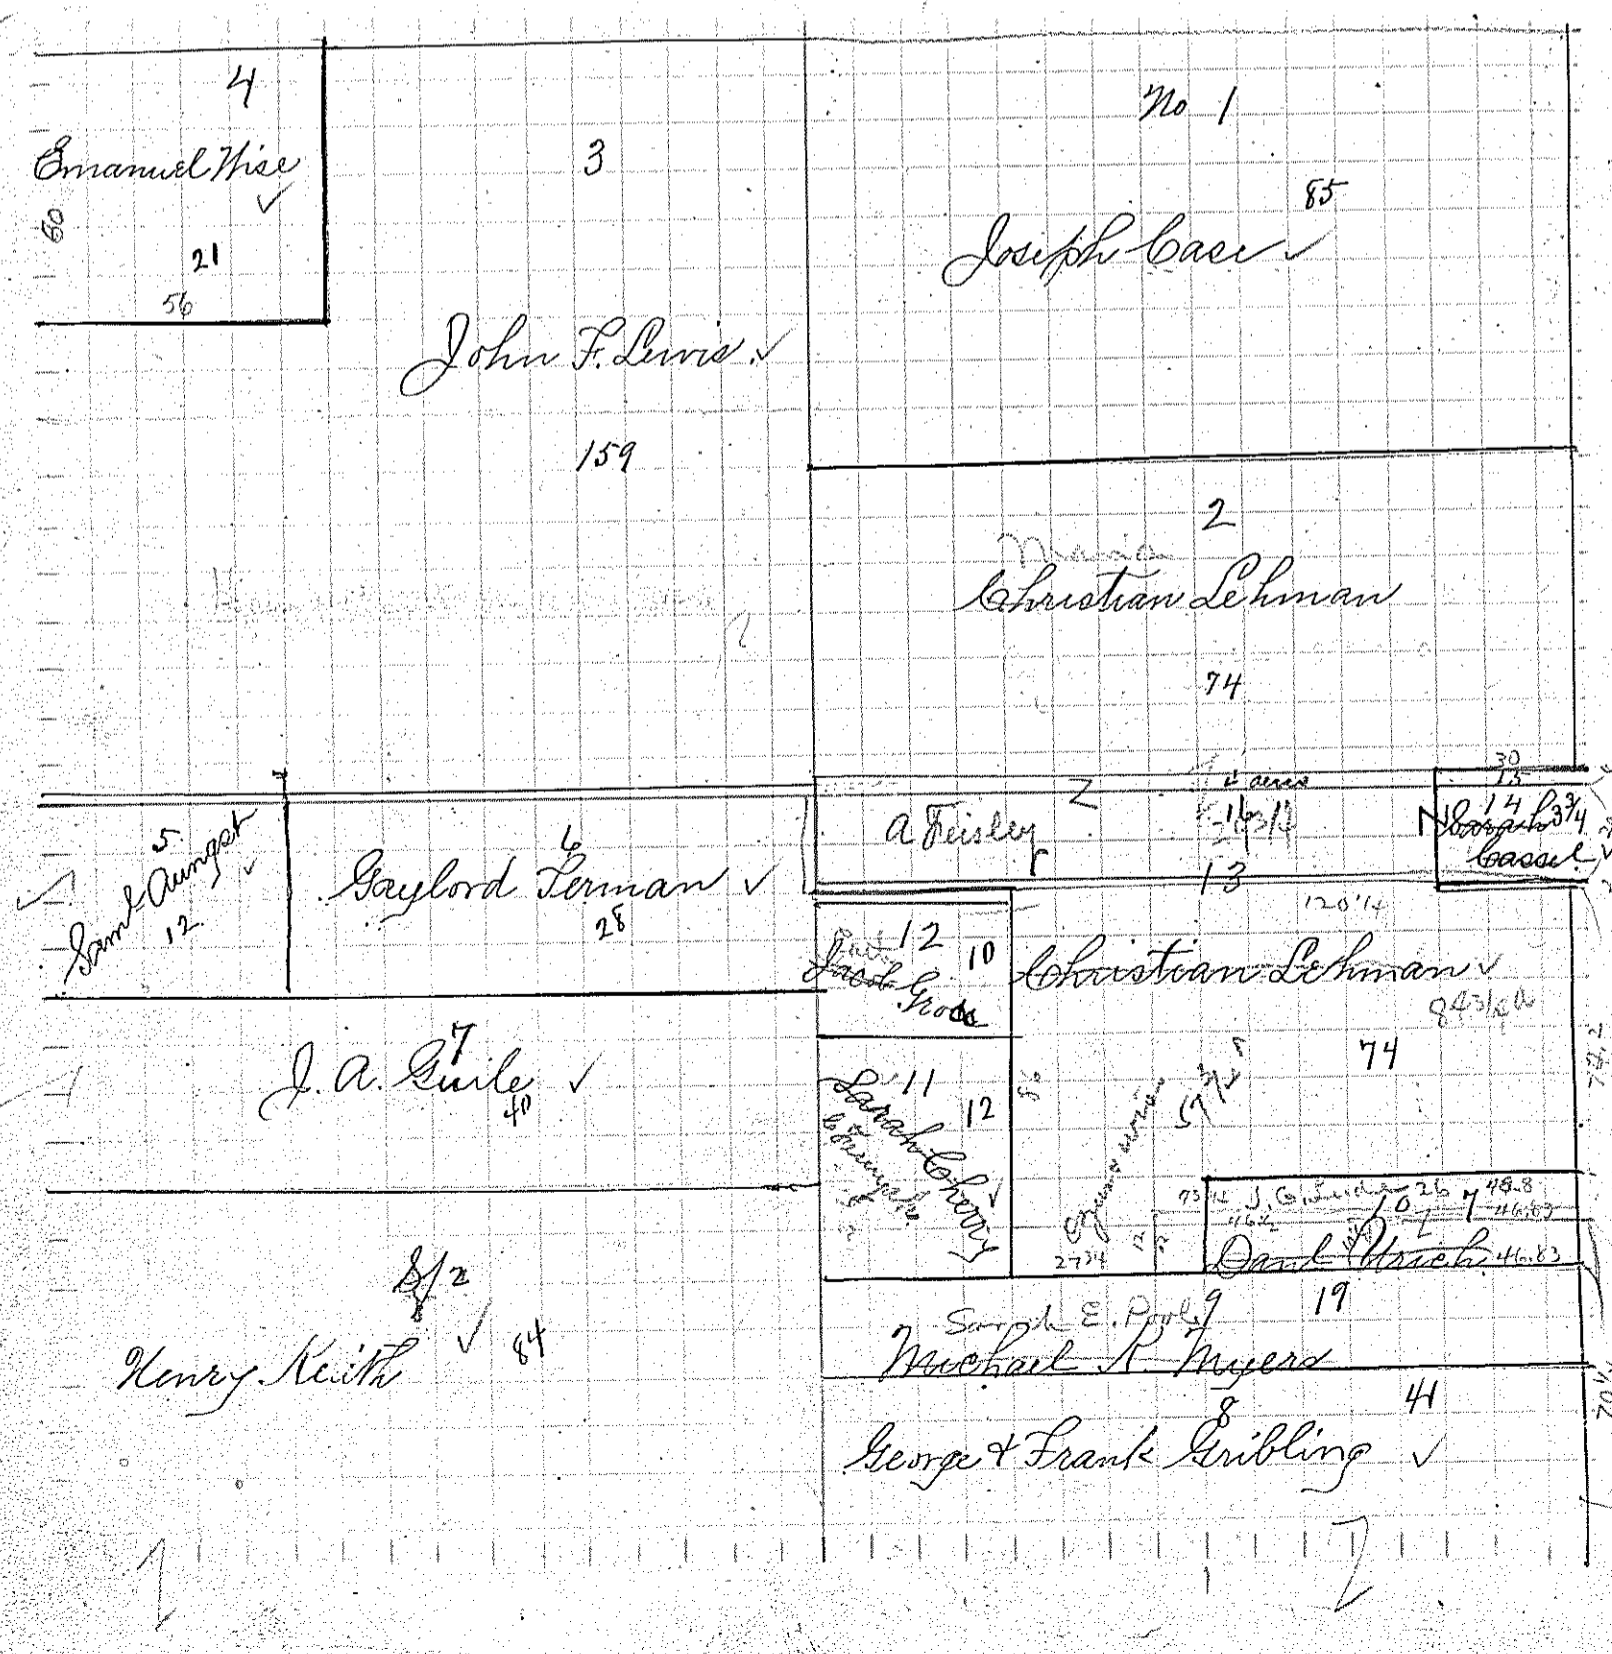 4
Emanuel Wise ✓
60
21
56
3
John F. Lewis ✓
159
No 1
85
Joseph Case ✓
2
Maria
Christian Lehman
74
5
Saml Aungst ✓
12
6
Gaylord Ferman ✓
28
A Feisley
acres
13
30
15
14
Sarah 3 3/4
Cassel ✓
120 1/4
12
10
Jacob Gross
Christian Lehman ✓
84 3/4 a
74
78.2
7
J. A. Guile ✓
40
11
Sarah Cherry ✓
12
56
27 3/4
10
26
7
48.8
46.83
Danl Urich 46.83
S/2
8
Henry Keith ✓
84
Sarah E. Pool
9
19
Michael R. Myers
8
41
George & Frank Gribling ✓